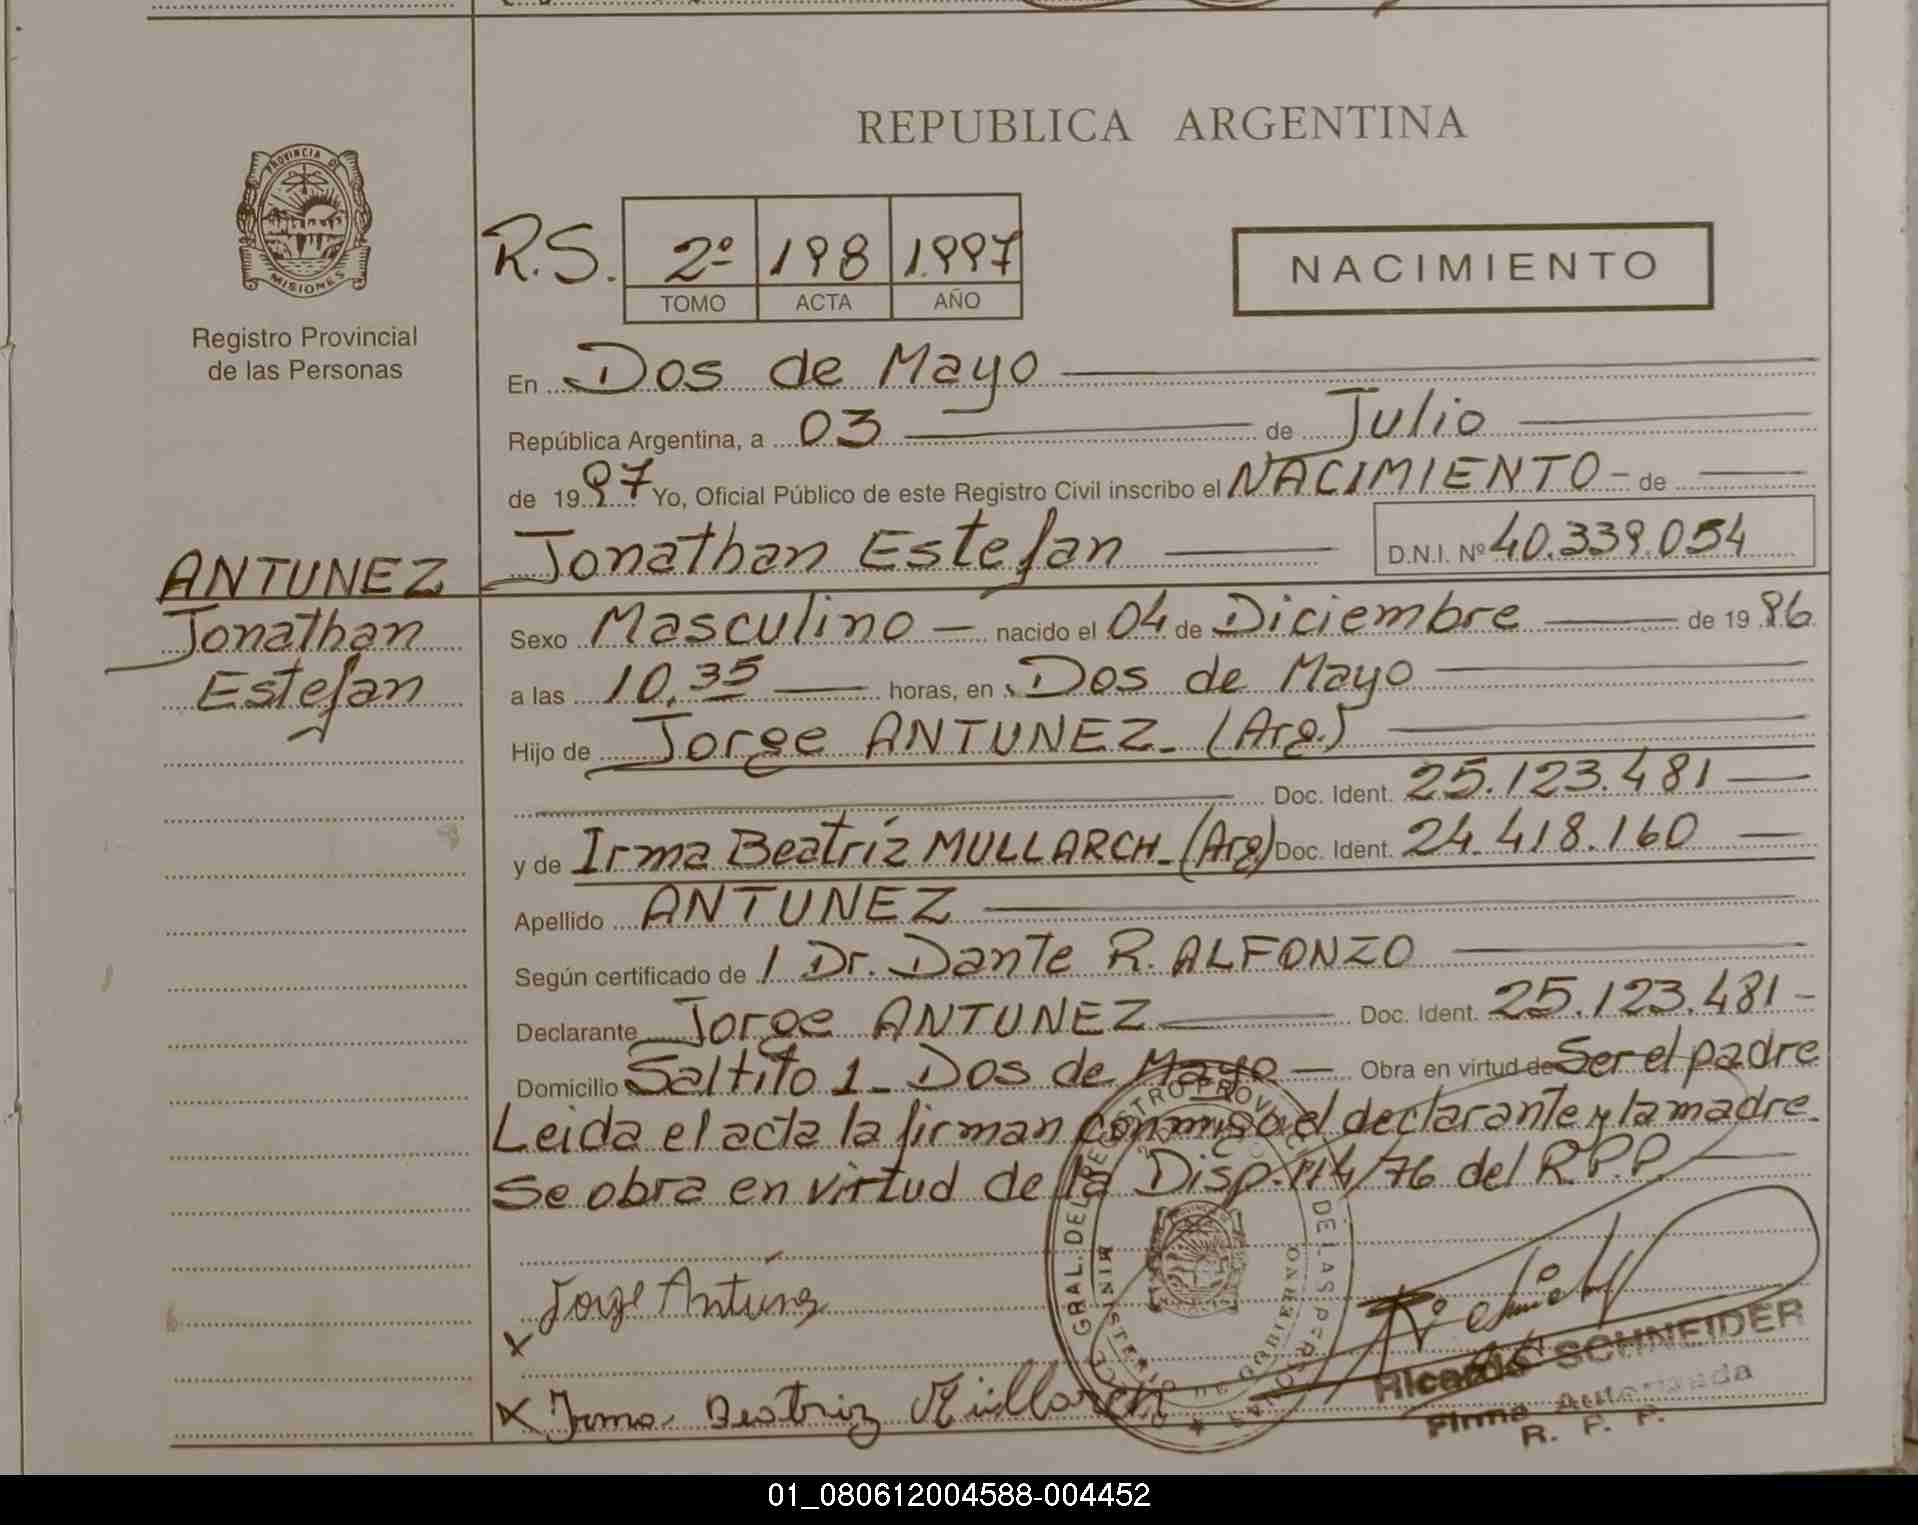 REPUBLICA ARGENTINA
PROVINCIA DE MISIONES
Registro Provincial
de las Personas
R.S. 2º 198 1.997
TOMO ACTA AÑO
NACIMIENTO
En Dos de Mayo
República Argentina, a 03 de Julio
de 1997 Yo, Oficial Público de este Registro Civil inscribo el NACIMIENTO - de
Jonathan Estefan D.N.I. Nº 40.339.054
ANTUNEZ
Jonathan
Estefan
Sexo Masculino - nacido el 04 de Diciembre de 1996
a las 10,35 horas, en Dos de Mayo
Hijo de Jorge ANTUNEZ_ (Arg.)
Doc. Ident. 25.123.481
y de Irma Beatriz MULLARCH_(Arg) Doc. Ident. 24.418.160
Apellido ANTUNEZ
Según certificado de / Dr. Dante R. ALFONZO
Declarante Jorge ANTUNEZ Doc. Ident. 25.123.481 -
Domicilio Saltito 1_ Dos de Mayo - Obra en virtud de Ser el padre
Leida el acta la firman conmigo el declarante y la madre.
Se obra en virtud de la Disp. 114/76 del R.P.P.
GRAL. DEL REGISTRO PROVINCIAL DE LAS PERSONAS
MINISTERIO DE GOBIERNO
x Jorge Antunez
x Irma Beatriz Mullarch
Ricardo SCHNEIDER
Firma Autorizada
R. P. P.
01_080612004588-004452